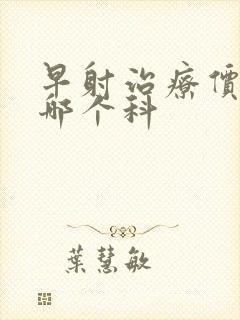 早射治療價
哪个科
葉慧敏